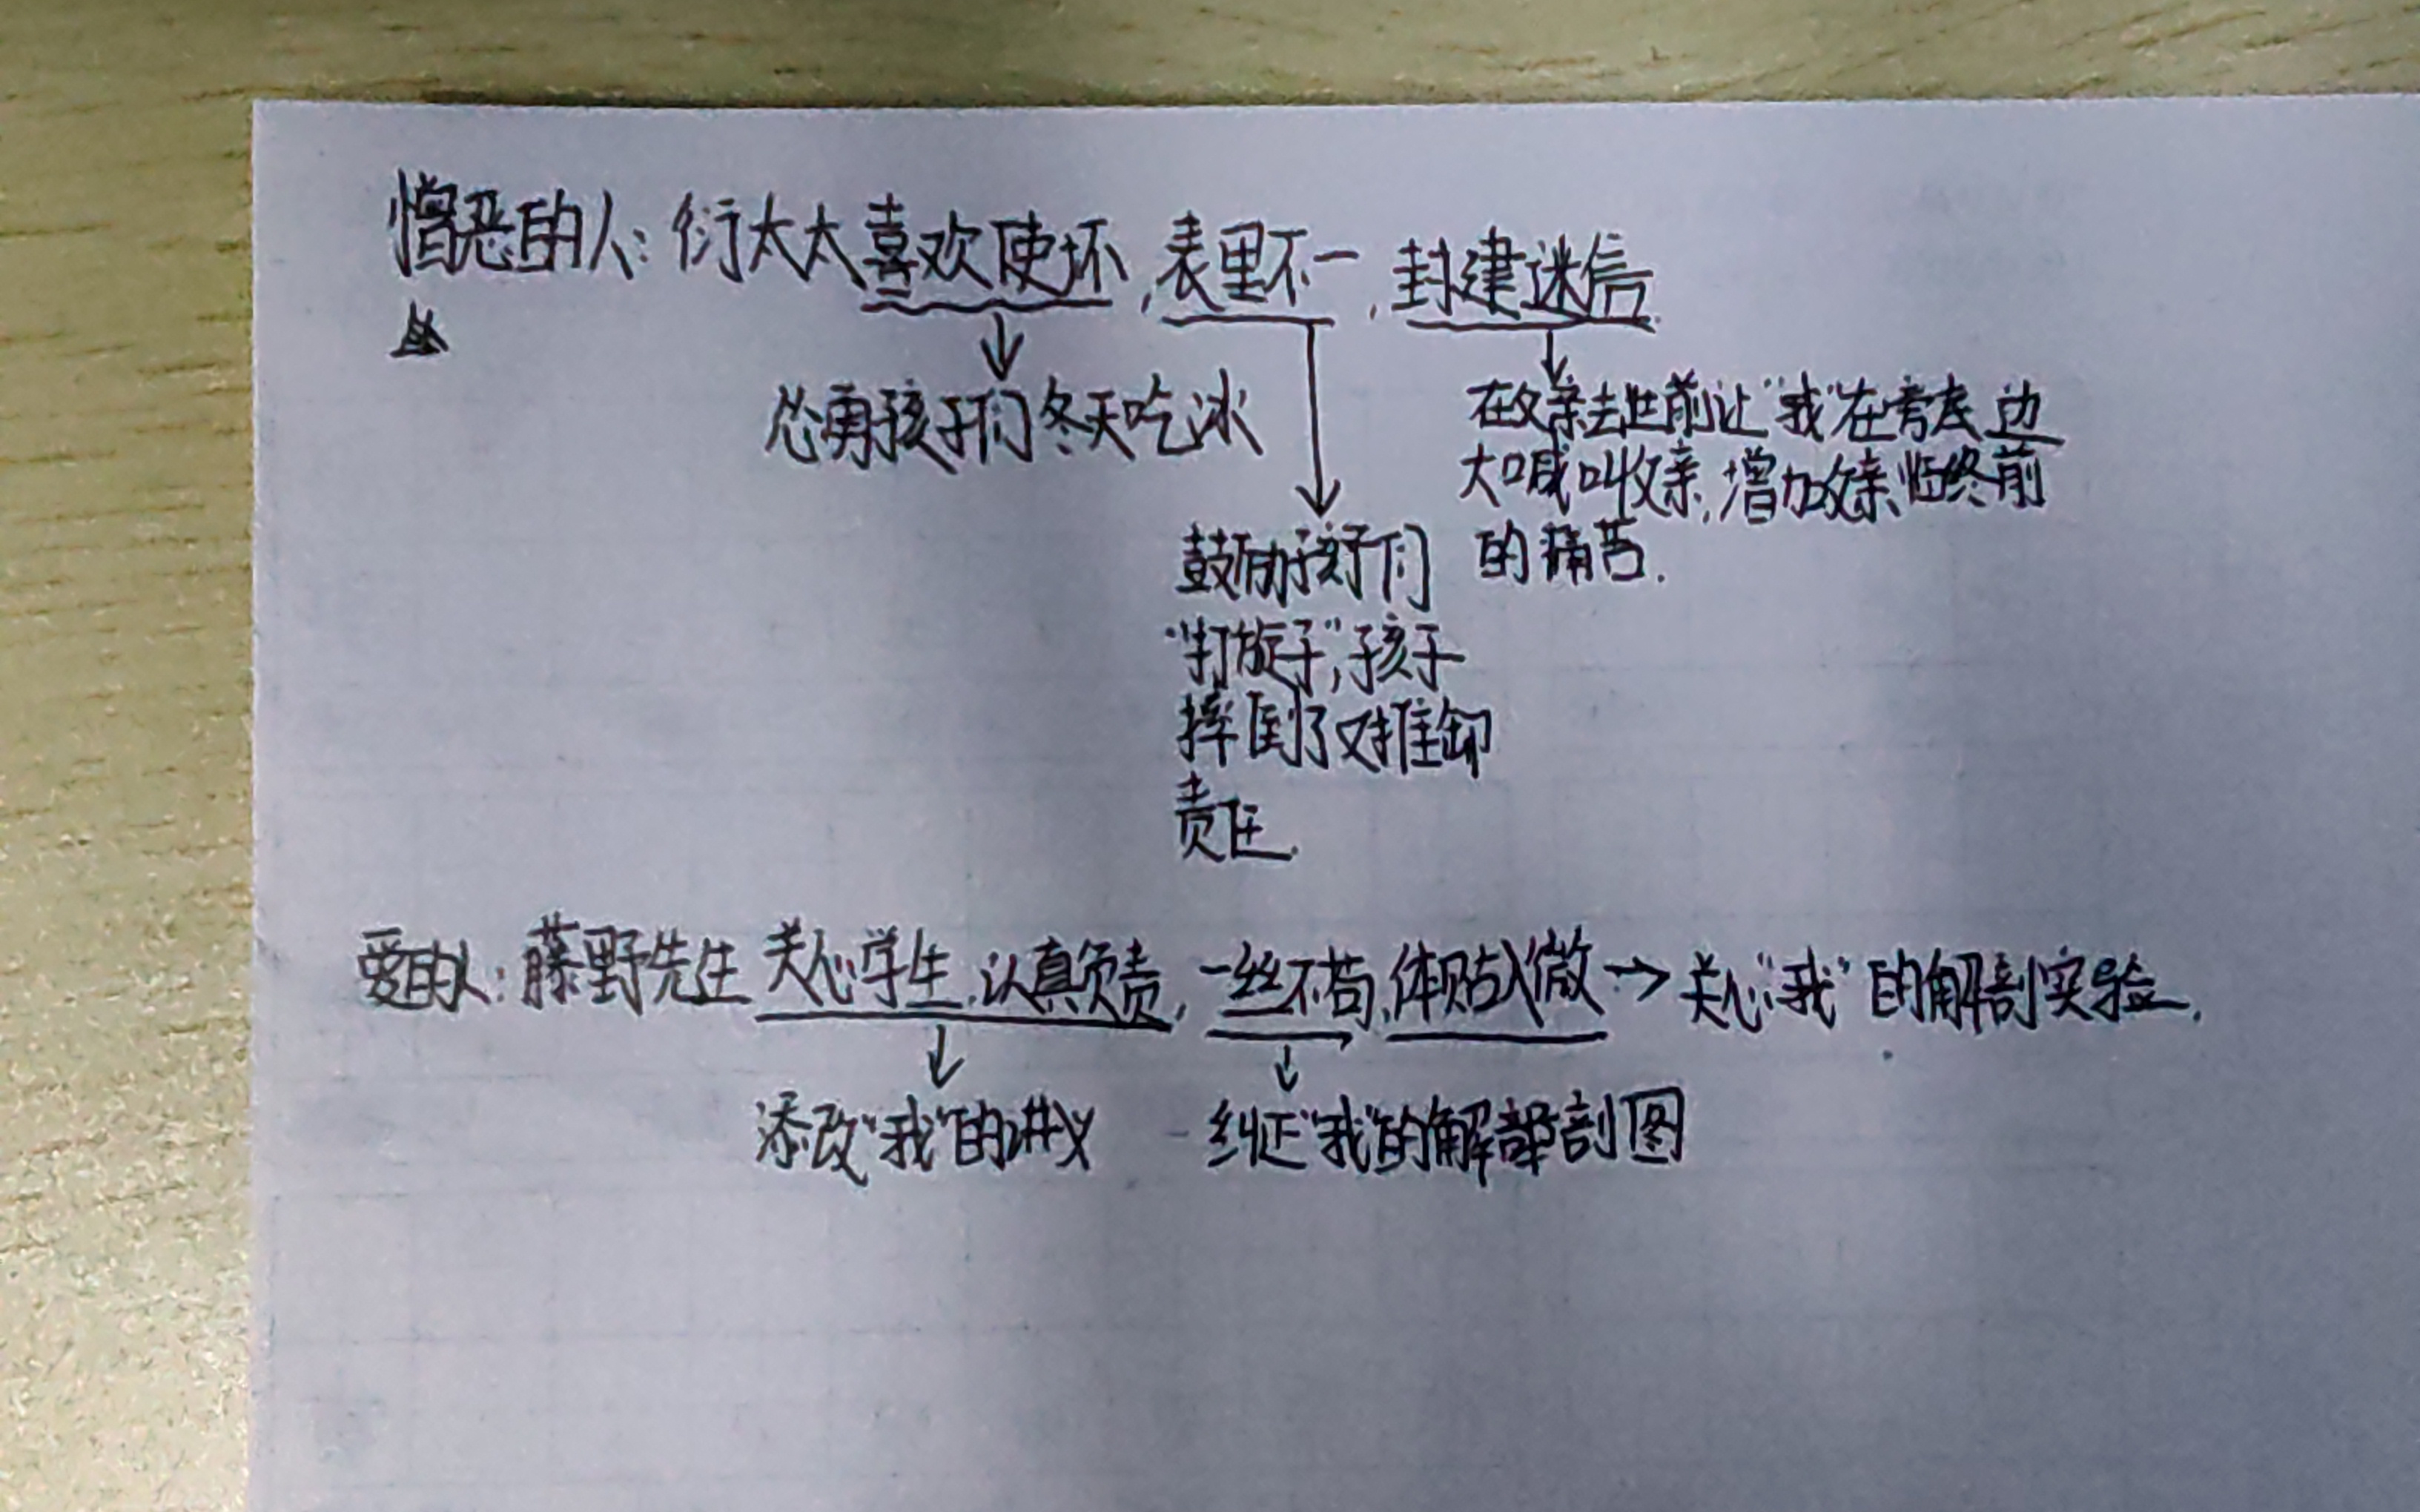 憎恶的人：衍太太喜欢使坏，表里不一，封建迷信.
怂恿孩子们冬天吃冰
在父亲去世前让“我”在旁边
大喊叫父亲，增加父亲临终前
的痛苦.
鼓励孩子们
“打旋子”，孩子
摔倒了又推卸
责任.
爱的人：藤野先生 关心学生、认真负责，一丝不苟、体贴入微→关心“我”的解剖实验.
添改“我”的讲义
纠正“我”的解剖图